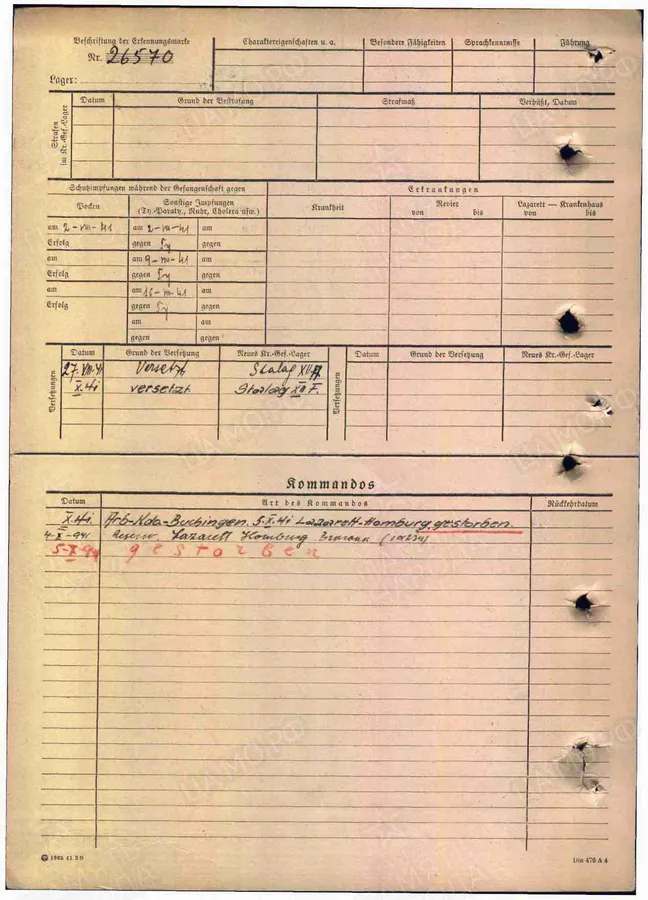 Beschriftung der Erkennungsmarke
Nr. 26570
Lager:
Charaktereigenschaften u. a.
Besondere Fähigkeiten
Sprachkenntnisse
Führung
Strafen im Kr.-Gef.-Lager
Datum
Grund der Bestrafung
Strafmaß
Verbüßt, Datum
Schutzimpfungen während der Gefangenschaft gegen
Erkrankungen
Pocken
Sonstige Impfungen
(Ty.-Paraty., Ruhr, Cholera usw.)
Krankheit
Revier
von bis
Lazarett — Krankenhaus
von bis
am 2-VIII-41 am 2-VIII-41 am
Erfolg gegen Ty gegen
am am 9-VIII-41 am
Erfolg gegen Ty gegen
am am 16-VIII-41 am
Erfolg gegen Ty gegen
am am
gegen gegen
Versetzungen
Datum Grund der Versetzung Neues Kr.-Gef.-Lager
27.VIII.41 Versetzt Stalag XII
X.41 versetzt Stalag XII F.
Versetzungen
Datum Grund der Versetzung Neues Kr.-Gef.-Lager
Kommandos
Datum Art des Kommandos Rückkehrdatum
X.41. Arb-Kdo-Buchingen. 5.X.41 Lazarett-Homburg, gestorben.
4-X-941 Reserv. Lazarett Homburg
5-X-941 gestorben
1985 41 2 D
Din 476 A 4
ЦАМО РФ